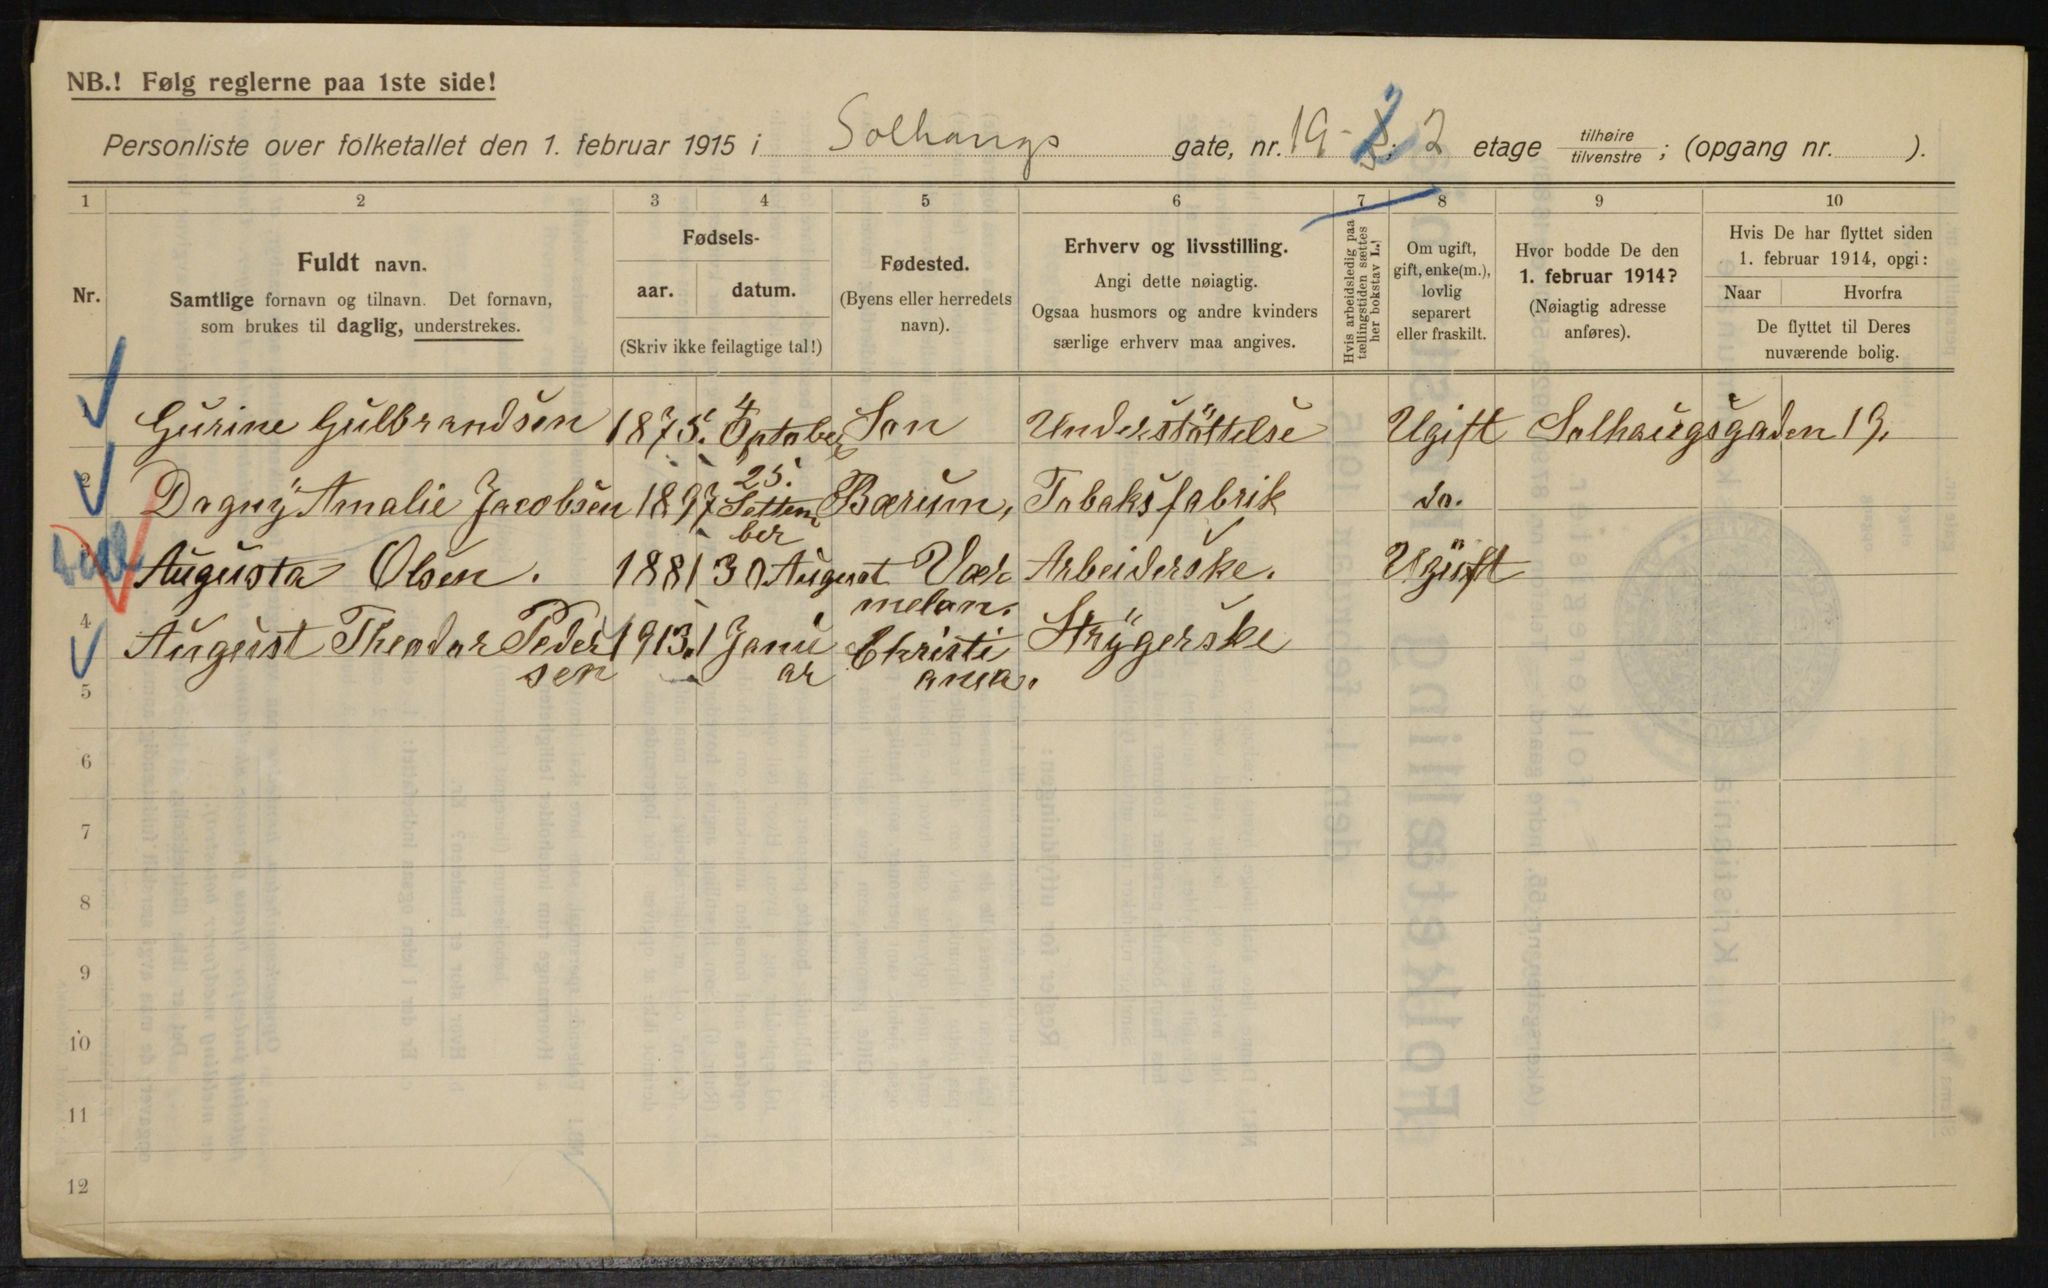 NB.! Følg reglerne paa 1ste side!
Personliste over folketallet den 1. februar 1915 i Solhaugs gate, nr. 19 - 2 etage tilhøire / tilvenstre; (opgang nr. ).
1 2 3 4 5 6 7 8 9 10
Nr.
Fuldt navn.
Samtlige fornavn og tilnavn. Det fornavn,
som brukes til daglig, understrekes.
Fødsels-
aar. datum.
(Skriv ikke feilagtige tal!)
Fødested.
(Byens eller herredets
navn).
Erhverv og livsstilling.
Angi dette nøiagtig.
Ogsaa husmors og andre kvinders
særlige erhverv maa angives.
Hvis arbeidsledig paa
tællingstiden sættes
her bokstav L.!
Om ugift,
gift, enke(m.),
lovlig
separert
eller fraskilt.
Hvor bodde De den
1. februar 1914?
(Nøiagtig adresse
anføres).
Hvis De har flyttet siden
1. februar 1914, opgi:
Naar Hvorfra
De flyttet til Deres
nuværende bolig.
Gurine Gulbrandsen 1875. 4 Oktober Son Understöttelse Ugift Solhaugsgaden 19.
2 Dagny Amalie Jacobsen 1897 25. Settember Bærum, Tabaksfabrik do.
Augusta Olsen. 1881 30 August Værmelan. Arbeiderske. Ugift
4 August Theodor Pedersen 1913. 1 Januar Christiania. Strygerske
5
6
7
8
9
10
11
12